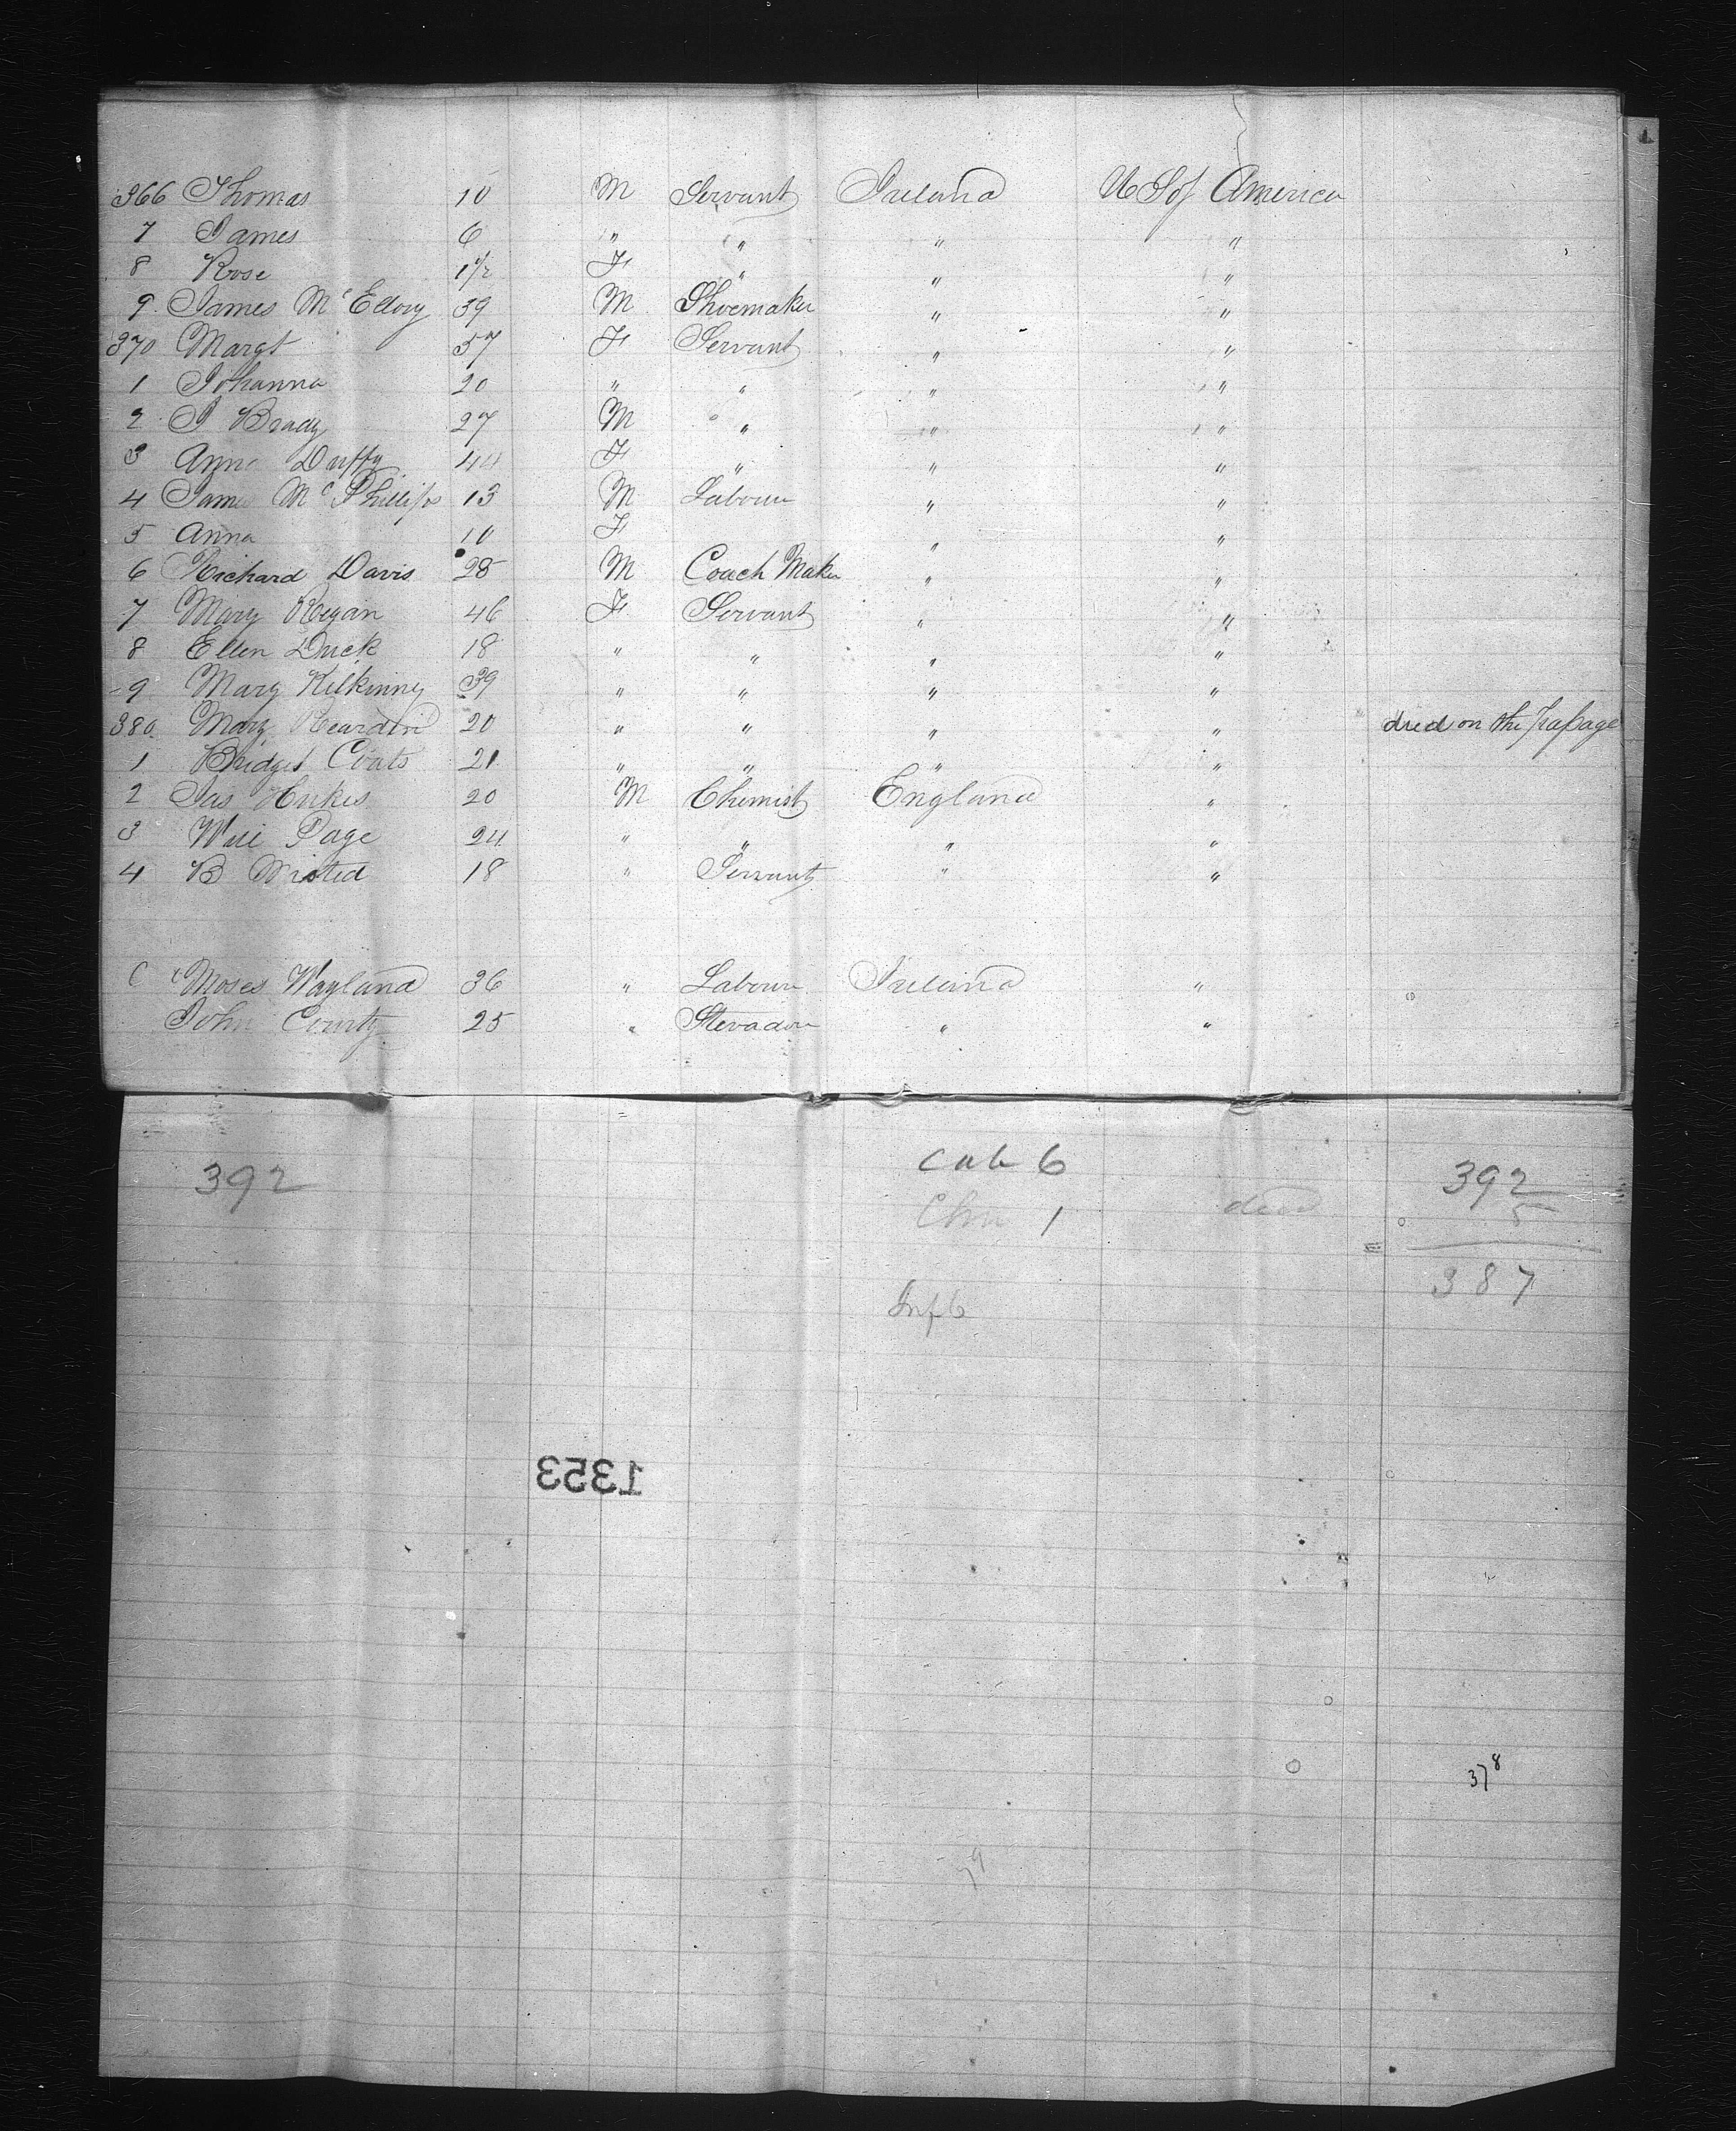 366 Thomas 10 M Servant Ireland U S of America
7 James 6 " " " "
8 Rose 1 1/2 F " " "
9 James McElloy 39 M Shoemaker " "
370 Margt 57 F Servant " "
1 Johanna 20 " " " "
2 J Brady 27 M " " "
3 Anne Duffy 44 F " " "
4 James McPhillips 13 M Labour " "
5 Anna 10 F " "
6 Richard Davis 28 M Coach Maker " "
7 Mary Regan 46 F Servant " "
8 Ellen Duck 18 " " " "
9 Mary Kilkinny 39 " " " "
380 Mary Reardon 20 " " " " died on the passage
1 Bridget Coats 21 " " " "
2 Jas 20 M Chemist England "
3 Will Page 24 " " " "
4 B Wisted 18 " Servant " "
C Moses Wayland 36 " Labour Ireland "
John County 25 " Stevador " "
392 Cab 6 392
Chn 1 died 5
387
Inf 6
1353
378
79